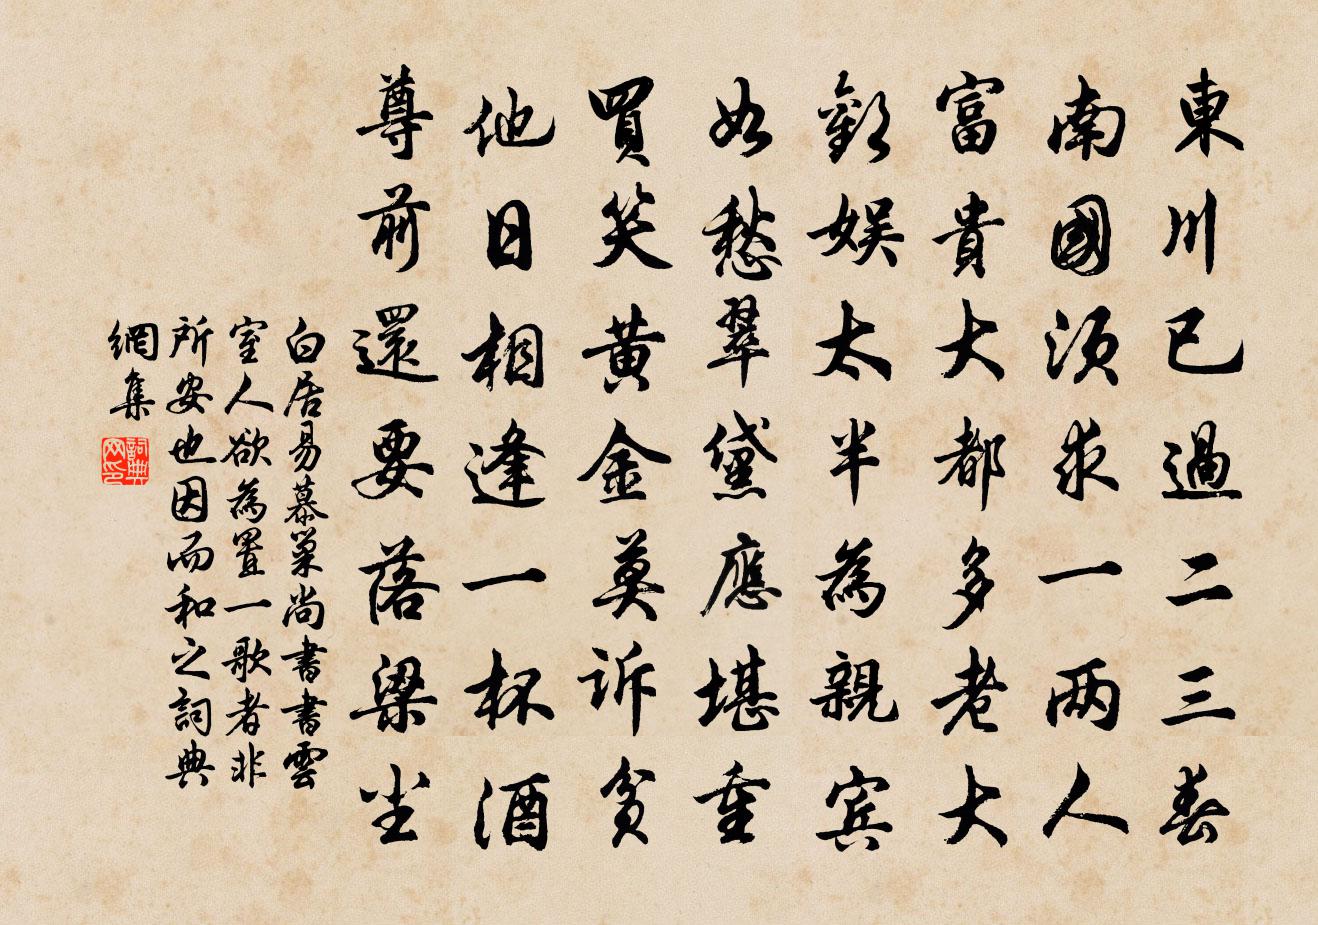 東川已過二三春
南國須求一两人
富貴大都多老大
歡娱太半為親宾
如愁翠黛應堪重
買笑黄金莫訴貧
他日相逢一杯酒
尊前還要落梁尘
白居易慕巢尚書書雲
室人欲為置一歌者非
所安也因而和之詞典
網集
詞典网印